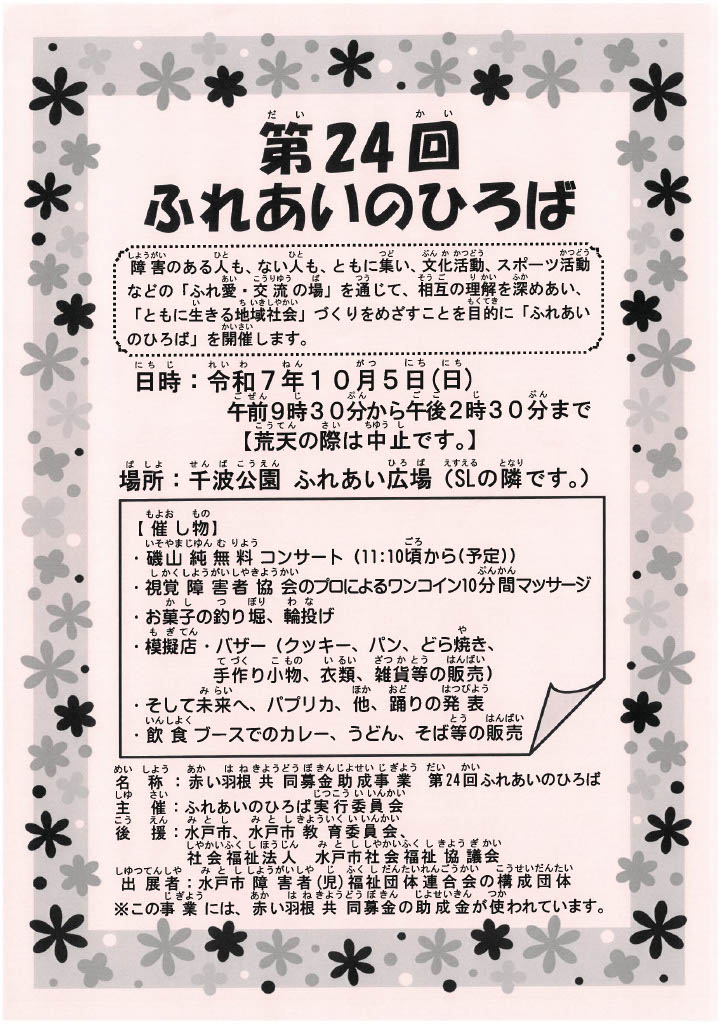 第24回
ふれあいのひろば
障害のある人も、ない人も、ともに集い、文化活動、スポーツ活動
などの「ふれ愛・交流の場」を通じて、相互の理解を深めあい、
「ともに生きる地域社会」づくりをめざすことを目的に「ふれあい
のひろば」を開催します。
日時：令和７年１０月５日(日)
午前９時３０分から午後２時３０分まで
【荒天の際は中止です。】
場所：千波公園 ふれあい広場（SLの隣です。）
【催し物】
・磯山純無料コンサート（11:10頃から(予定)）
・視覚障害者協会のプロによるワンコイン10分間マッサージ
・お菓子の釣り堀、輪投げ
・模擬店・バザー（クッキー、パン、どら焼き、
手作り小物、衣類、雑貨等の販売）
・そして未来へ、パプリカ、他、踊りの発表
・飲食ブースでのカレー、うどん、そば等の販売
名称：赤い羽根共同募金助成事業 第24回ふれあいのひろば
主催：ふれあいのひろば実行委員会
後援：水戸市、水戸市教育委員会、
社会福祉法人 水戸市社会福祉協議会
出展者：水戸市障害者(児)福祉団体連合会の構成団体
※この事業には、赤い羽根共同募金の助成金が使われています。